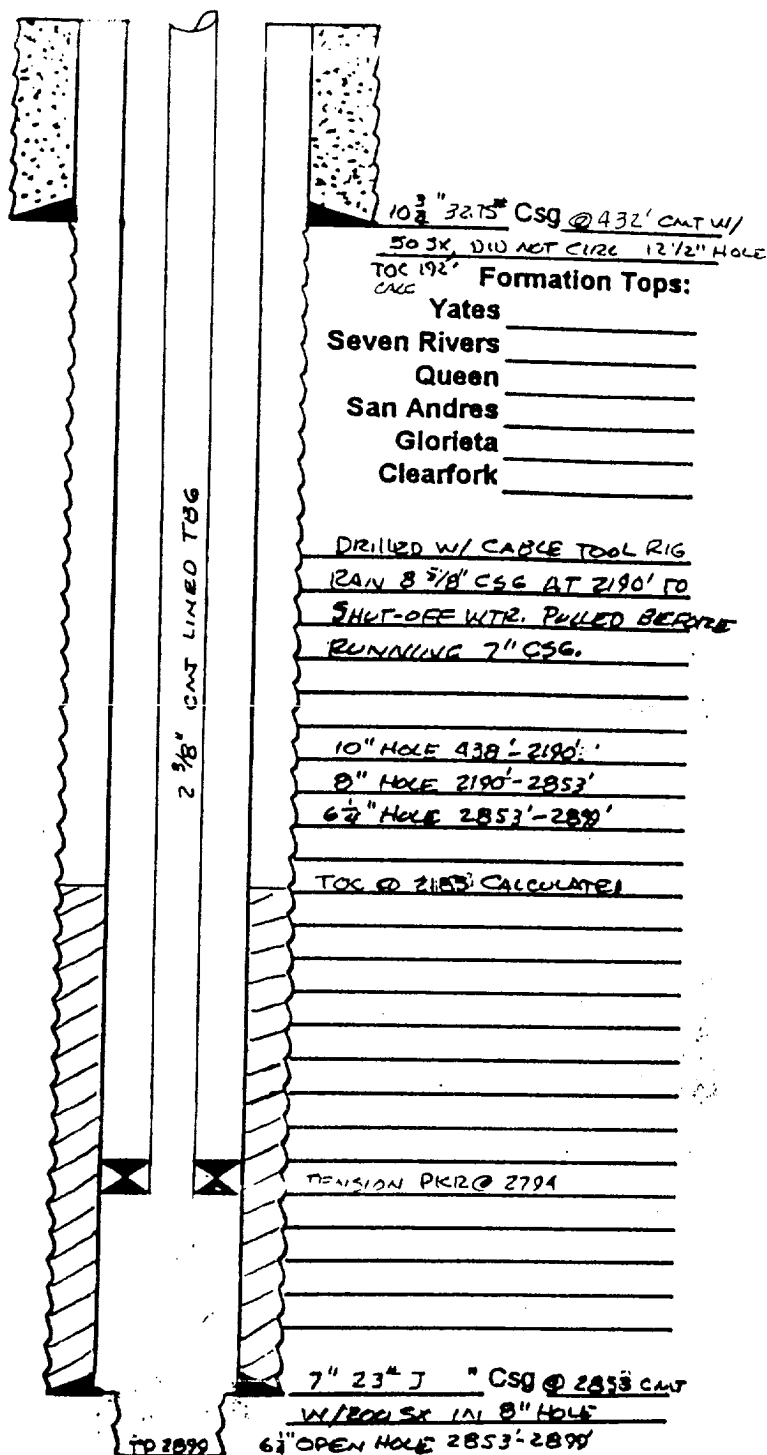 10 3/4" 32.75# Csg @ 432' CMT W/
50 SX, DID NOT CIRC 12 1/2" HOLE
TOC 192'
CALC
Formation Tops:
Yates
Seven Rivers
Queen
San Andres
Glorieta
Clearfork
2 3/8" CMT LINED TBG
DRILLED W/ CABLE TOOL RIG
RAN 8 5/8" CSG AT 2190' TO
SHUT-OFF WTR. PULLED BEFORE
RUNNING 7" CSG.
10" HOLE 438'-2190'
8" HOLE 2190'-2853'
6 1/4" HOLE 2853'-2899'
TOC @ CALCULATED
TENSION PKR @ 2794
7" 23# J " Csg @ 2853 CMT
W/200 SX IN 8" HOLE
TD 2899
6 1/4" OPEN HOLE 2853'-2899'